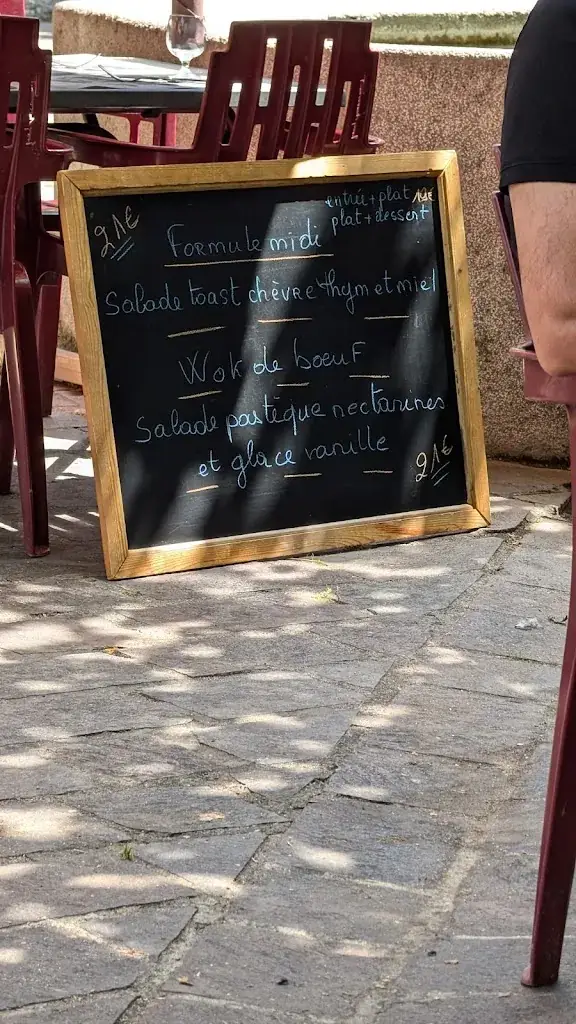 21€
entrée+plat
plat+dessert
Formule midi
Salade toast chèvre thym et miel
Wok de boeuf
Salade pastèque nectarines
et glace vanille
21€